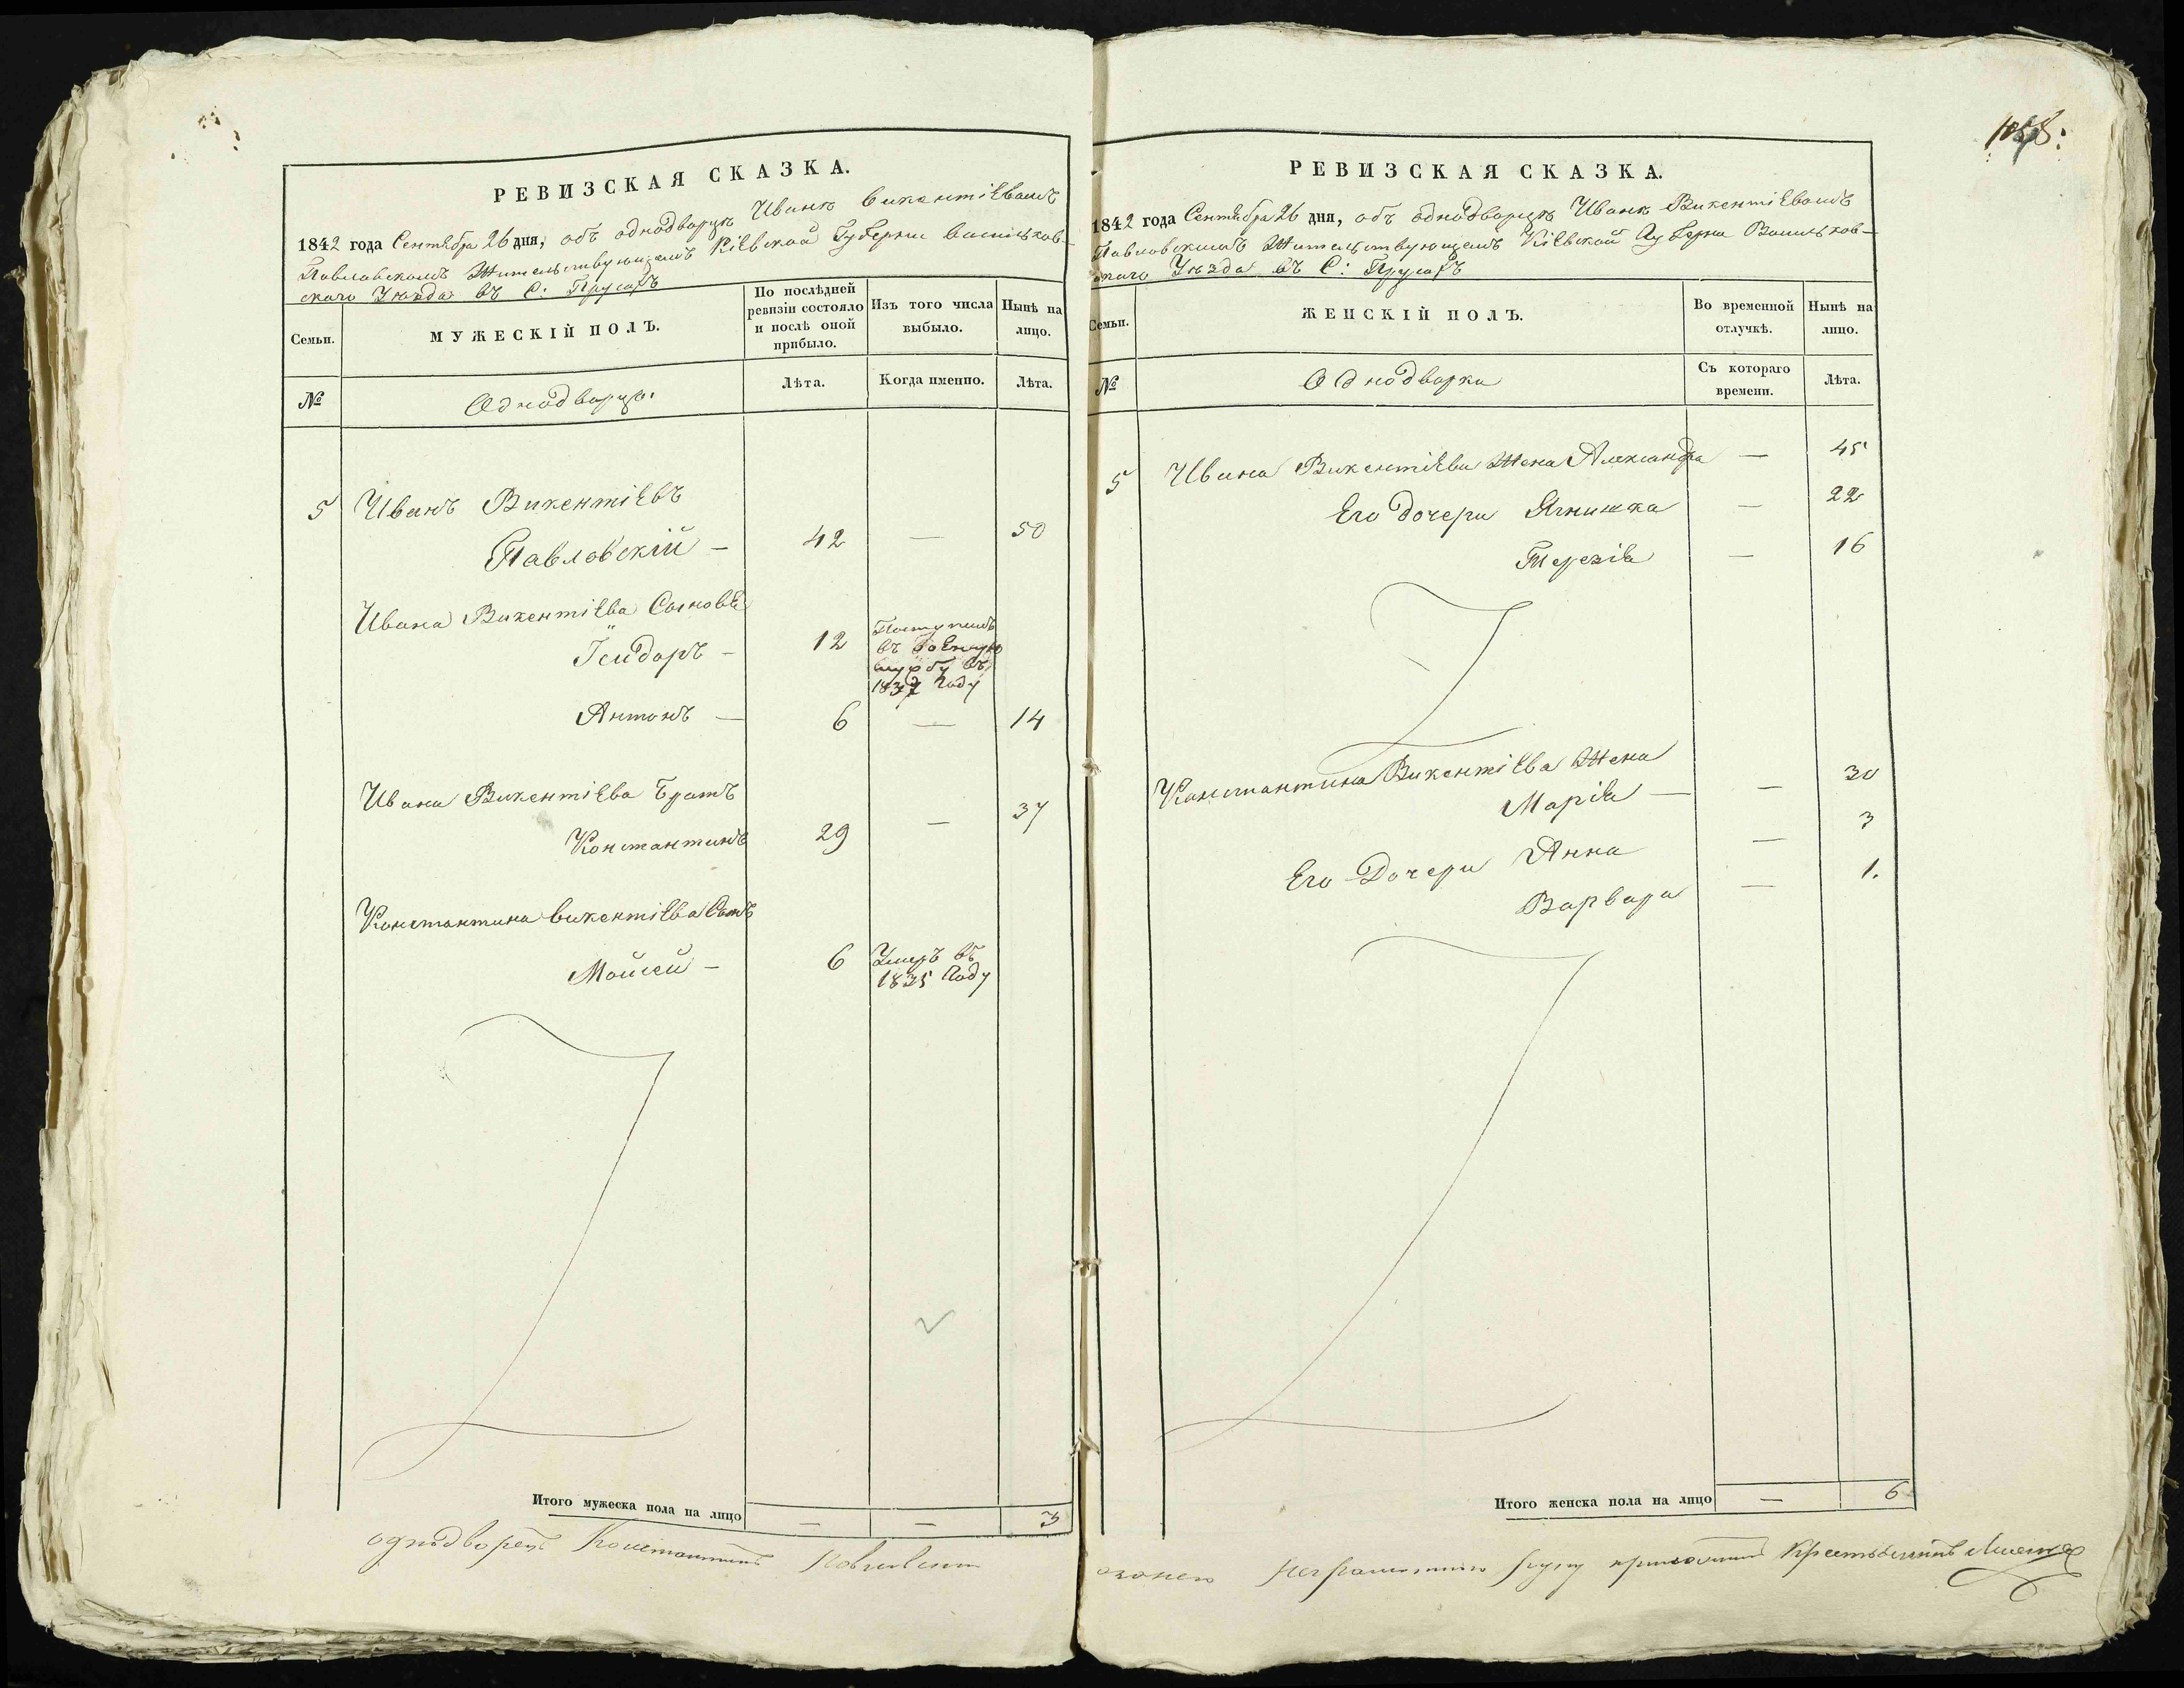 РЕВИЗСКАЯ СКАЗКА.
1842 года Сентября 26 дня, объ однодворцѣ Иванѣ Викентіевомъ
Павловскомъ Жительствующемъ Кіевской Губерніи Васильков-
скаго Уѣзда въ С: Прусахъ
Семьи.
МУЖЕСКІЙ ПОЛЪ.
По послѣдней
ревизіи состояло
и послѣ оной
прибыло.
Изъ того числа
выбыло.
Нынѣ на
лицо.
№
Однодворцы.
Лѣта.
Когда именно.
Лѣта.
5 Иванъ Викентіевъ
Павловскій - 42 — 50
Ивана Викентіева Сыновья
Исидоръ - 12 Поступилъ
въ Военную
службу въ
1837 Году
Антонъ — 6 — 14
Ивана Викентіева Братъ
Константинъ 29 — 37
Константина Викентіева Сынъ
Мойсей - 6 Умеръ въ
1835 Году
Итого мужеска пола на лицо — — 3
однодворецъ Константинъ
1058:
РЕВИЗСКАЯ СКАЗКА.
1842 года Сентября 26 дня, объ однодворцѣ Иванѣ Викентіевомъ
Павловскимъ Жительствующемъ Кіевской Губерни Васильков-
скаго Уѣзда въ С: Прусахъ
Семьи.
ЖЕНСКІЙ ПОЛЪ.
Во временной
отлучкѣ.
Нынѣ на
лицо.
№
Однодворки
Съ котораго
времени.
Лѣта.
5 Ивана Викентіева Жена Александра — 45
Его дочери Ягнишка — 22
Терезія — 16
Константина Викентіева Жена
Марія — — 30
Его Дочери Анна — 3
Варвара — 1.
Итого женска пола на лицо — 6
неграмотного руку приложилъ Крестьянинъ